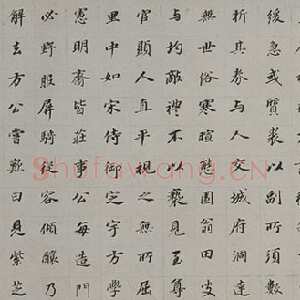 緩急或質裘以副所須數
析其券与人交城府洞達
無世俗寒暄態園翁田叟
与均敵禮不以褻見至尊
官顯人直平視之無所屈
里中如宋侍御定宇方學
憲明齋皆莊事公每造門
必野服屏騎從容傾釀乃
解去方公嘗歎曰見紫芝
Shufawang.CN